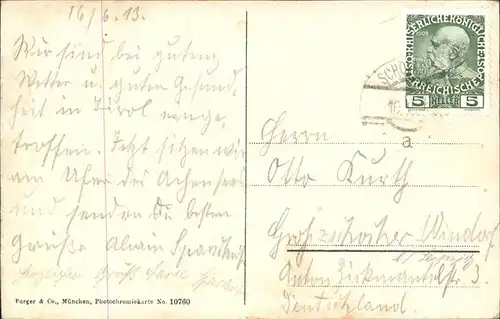 16/6.13.
Wir sind bei gutem
Wetter u. guter Gesund-
heit in Tirol
troffen. Jetzt sitzen wir
am Ufer des Achensees
und senden Dir besten
Grüße
Gruß
Purger & Co., München, Photochromiekarte No. 10760
KAISERLICHE KÖNIGLICHE
ÖSTERREICHISCHE
5 HELLER 5
a
Herrn
Otto Kurth
Großzschocher Windorf
b/ Leipzig
Anton Zickmantelstr. 3.
Deutschland.